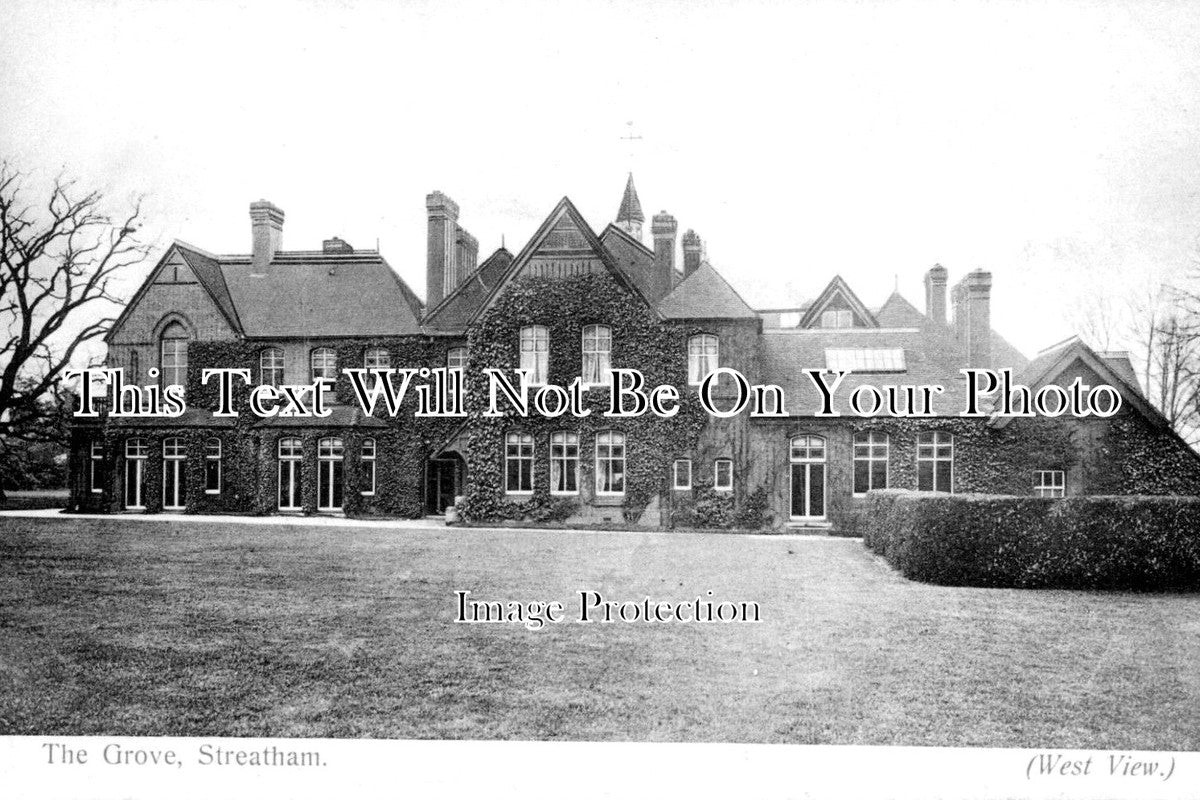 This Text Will Not Be On Your Photo
Image Protection
The Grove, Streatham.
(West View.)